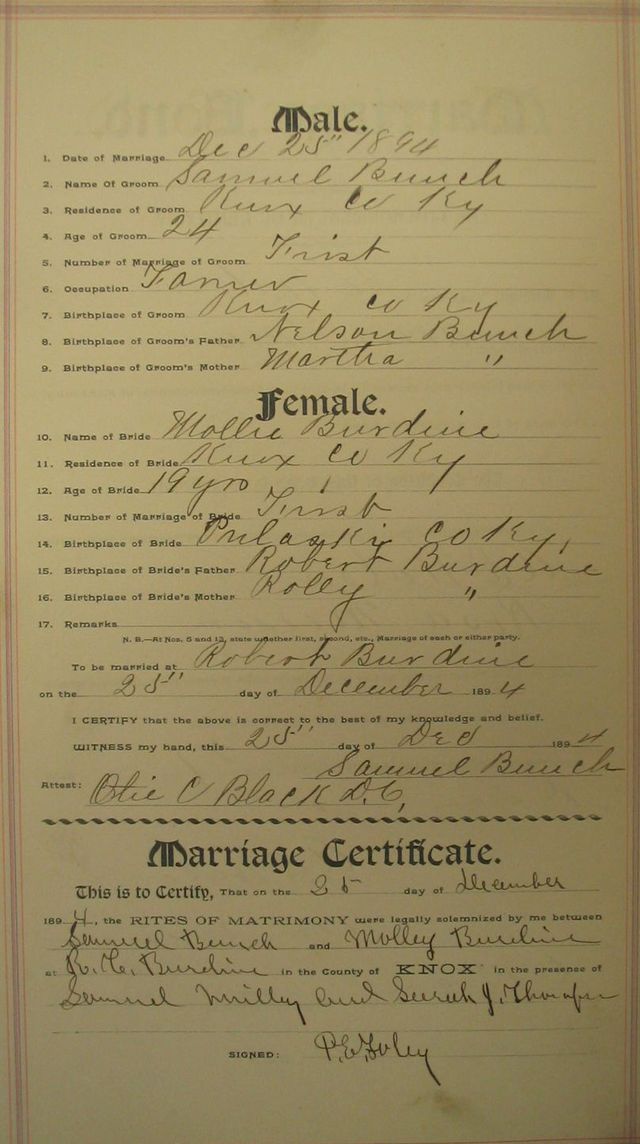 Male.
1. Date of Marriage Dec 25" 1894
2. Name Of Groom Samuel Bunch
3. Residence of Groom Knox Co Ky
4. Age of Groom 24
5. Number of Marriage of Groom First
6. Occupation Farmer
7. Birthplace of Groom Knox Co Ky
8. Birthplace of Groom's Father Nelson Bunch
9. Birthplace of Groom's Mother Martha "
Female.
10. Name of Bride Mollie Burdine
11. Residence of Bride Knox Co Ky
12. Age of Bride 19 yrs
13. Number of Marriage of Bride First
14. Birthplace of Bride Pulaski Co Ky,
15. Birthplace of Bride's Father Robert Burdine
16. Birthplace of Bride's Mother Rolly "
17. Remarks
N. B.—At Nos. 5 and 13, state whether first, second, etc., Marriage of each or either party.
To be married at Robert Burdine
on the 25" day of December 1894
I CERTIFY that the above is correct to the best of my knowledge and belief.
WITNESS my hand, this 25" day of Dec 1894
Samuel Bunch
Attest: Otie C Black D.C,
Marriage Certificate.
This is to Certify, That on the 25 day of December
1894, the RITES OF MATRIMONY were legally solemnized by me between
Samuel Bunch and Molley Burdine
at Burdine in the County of KNOX in the presence of
Samuel and Sarah J. Thompson
SIGNED: P. E. Foley